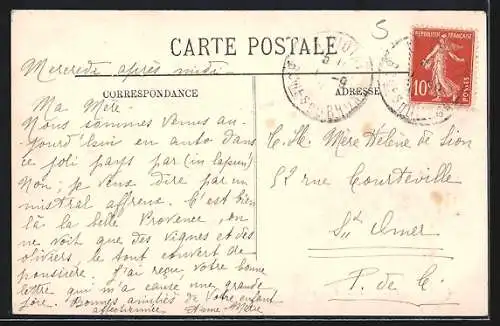 5
CARTE POSTALE
REPUBLIQUE FRANÇAISE
10
POSTES
Mercredi après midi
CORRESPONDANCE
ADRESSE
Ma Mère
Nous sommes venus au-
jourd'hui en auto dans
ce joli pays par (un lapsus)
Non, je veux dire par un
mistral affreux. C'est bien
là la belle Provence, on
ne voit que des vignes et des
oliviers, le tout couvert de
poussière. J'ai reçu votre bonne
lettre qui m'a causé une grande
joie. Bonnes amitiés de votre enfant
affectionnée Mère
Mère Hélène de Sion
52 rue Courteville
St Omer
P. de C.